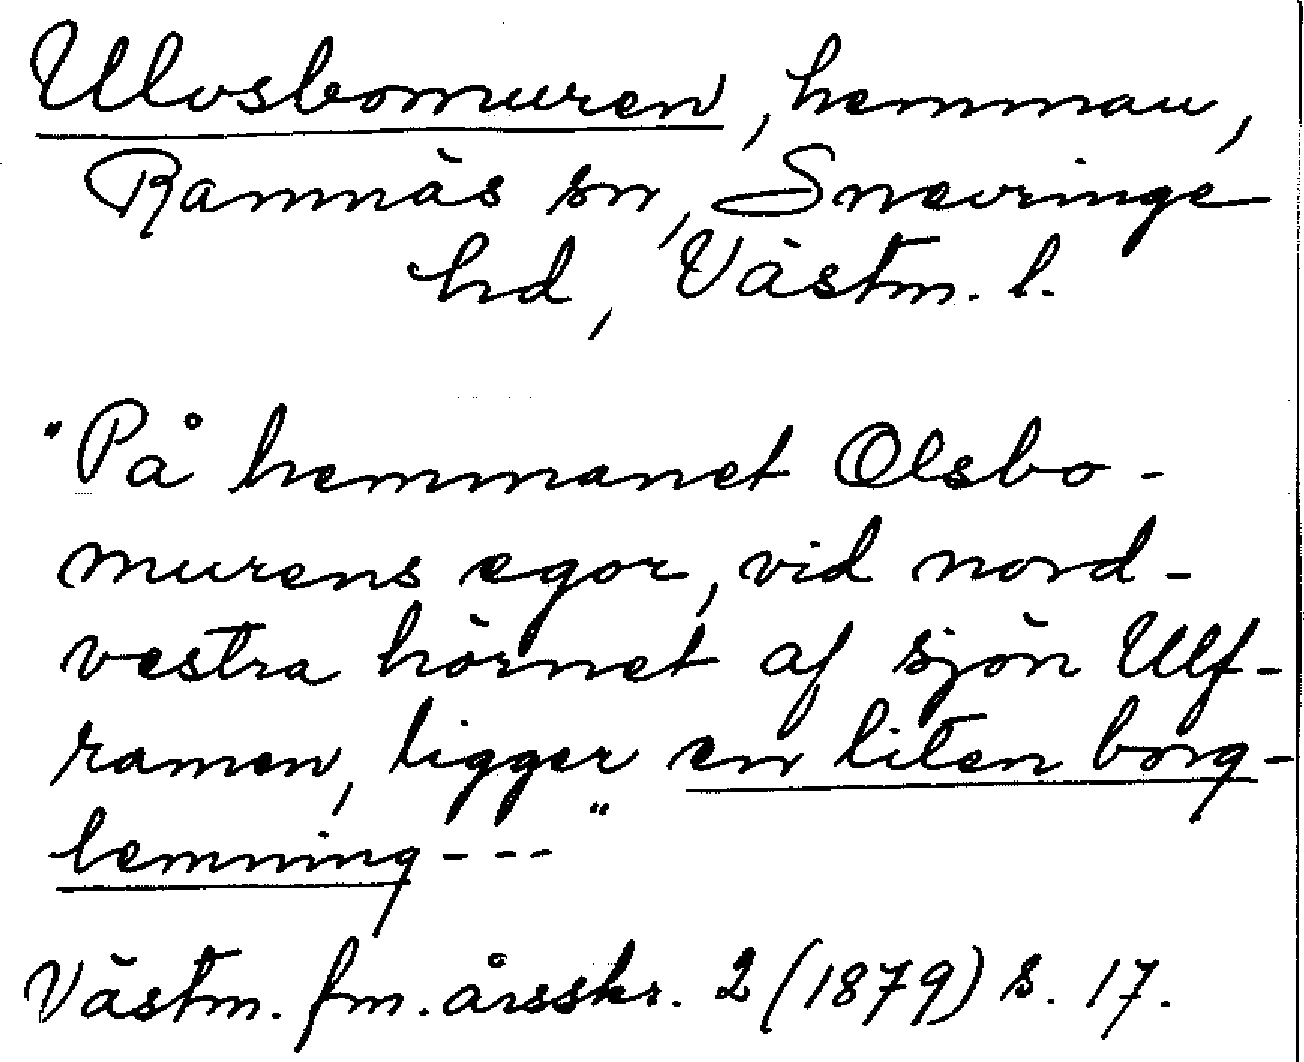 Ulvsbomuren, hemman,
Ramnäs sn, Snevringe
hd, Västm. l.
"På hemmanet Olsbo-
murens egor, vid nord-
vestra hörnet af sjön Ulf-
ramen, ligger en liten borg-
lemning---"
Västm. fm. årsskr. 2 (1879) s. 17.